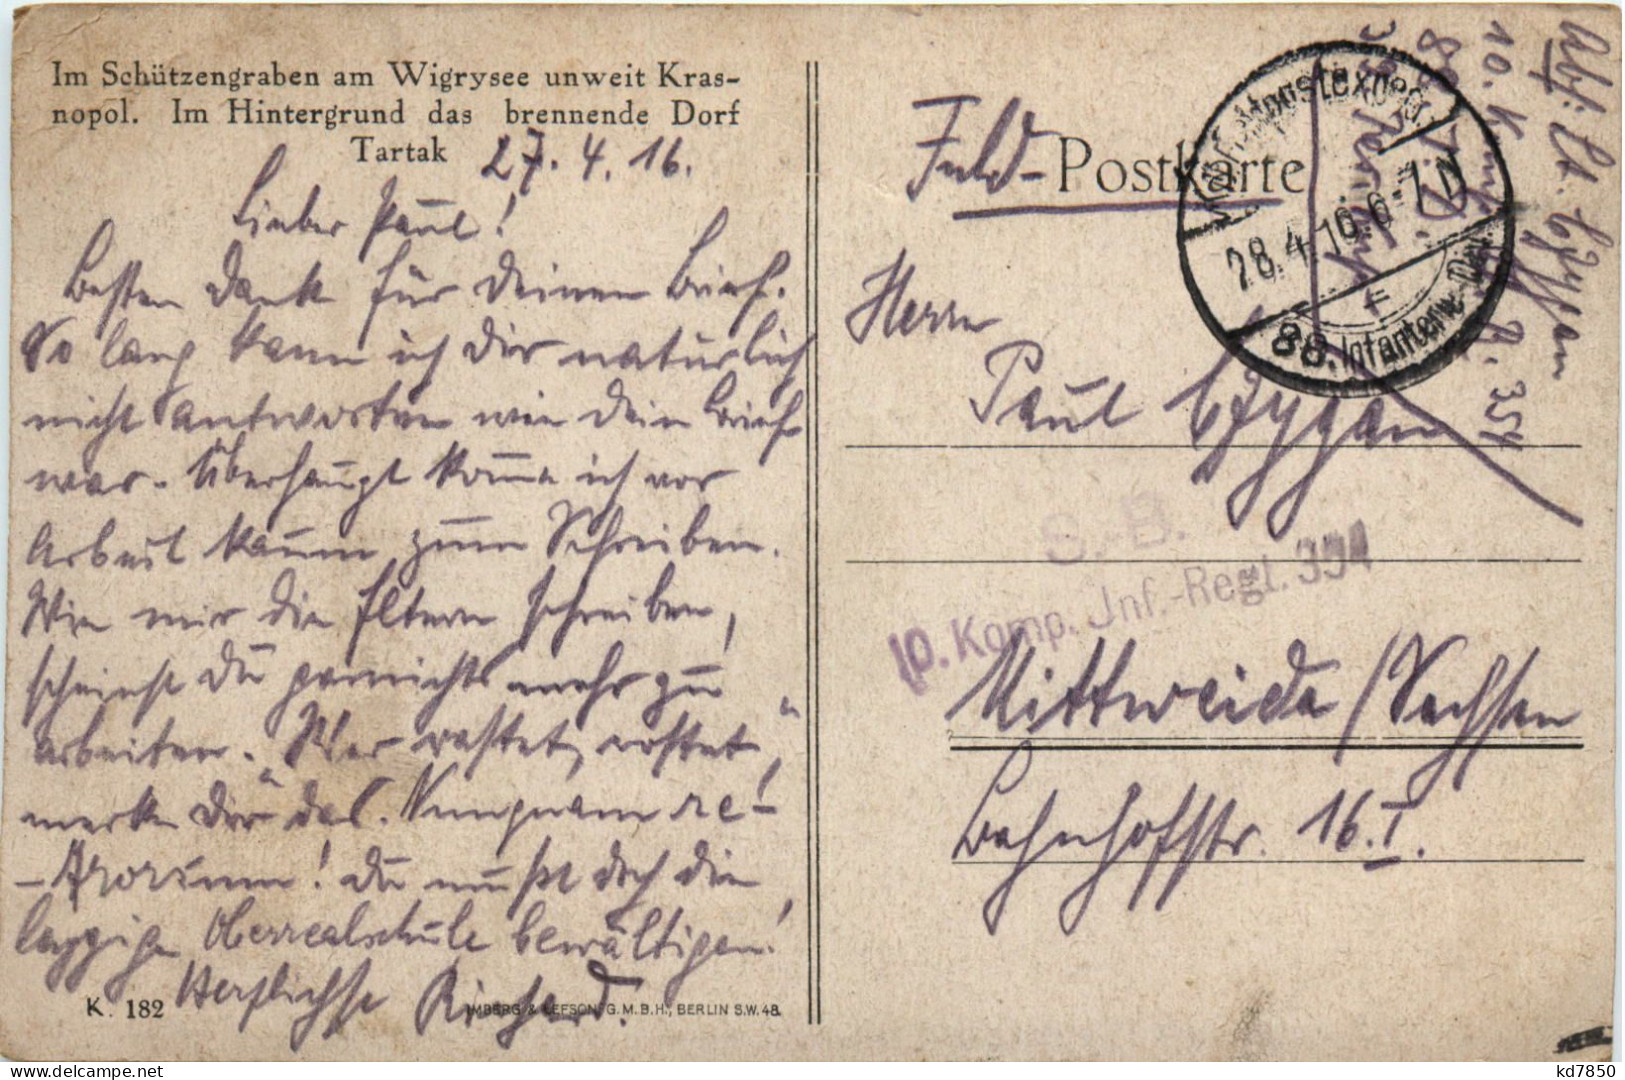 Im Schützengraben am Wigrysee unweit Kras-
nopol. Im Hintergrund das brennende Dorf
Tartak
27. 4. 16.
Lieber Paul!
Besten Dank für Deinen Brief.
So lang kann ich Dir natürlich
nicht antworten wie Dein Brief
war. Überhaupt komme ich vor
Arbeit kaum zum Schreiben.
Wie mir die Eltern schreiben,
scheinst Du garnichts mehr zu
arbeiten. "Wer rastet, rostet,"
merke Dir das. Nunquam re-
trorsum! Du mußt doch die
lappige Oberrealschule bewältigen!
Herzlichst Richard.
K. 182
IMBERG & LEFSON G.M.B.H., BERLIN S.W. 48.
Feld-Postkarte
Abs: Lt. Czygan
10. K. Inf. R. 354
88. I. D.
K.D. Feldpostexped.
28.4.16. 6-7 N
88. Infanterie-Div.
Herrn
Paul Czygan
S.-B.
10. Komp. Inf.-Regt. 354
Mittweida / Sachsen
Bahnhofstr. 16. I.
kd7850